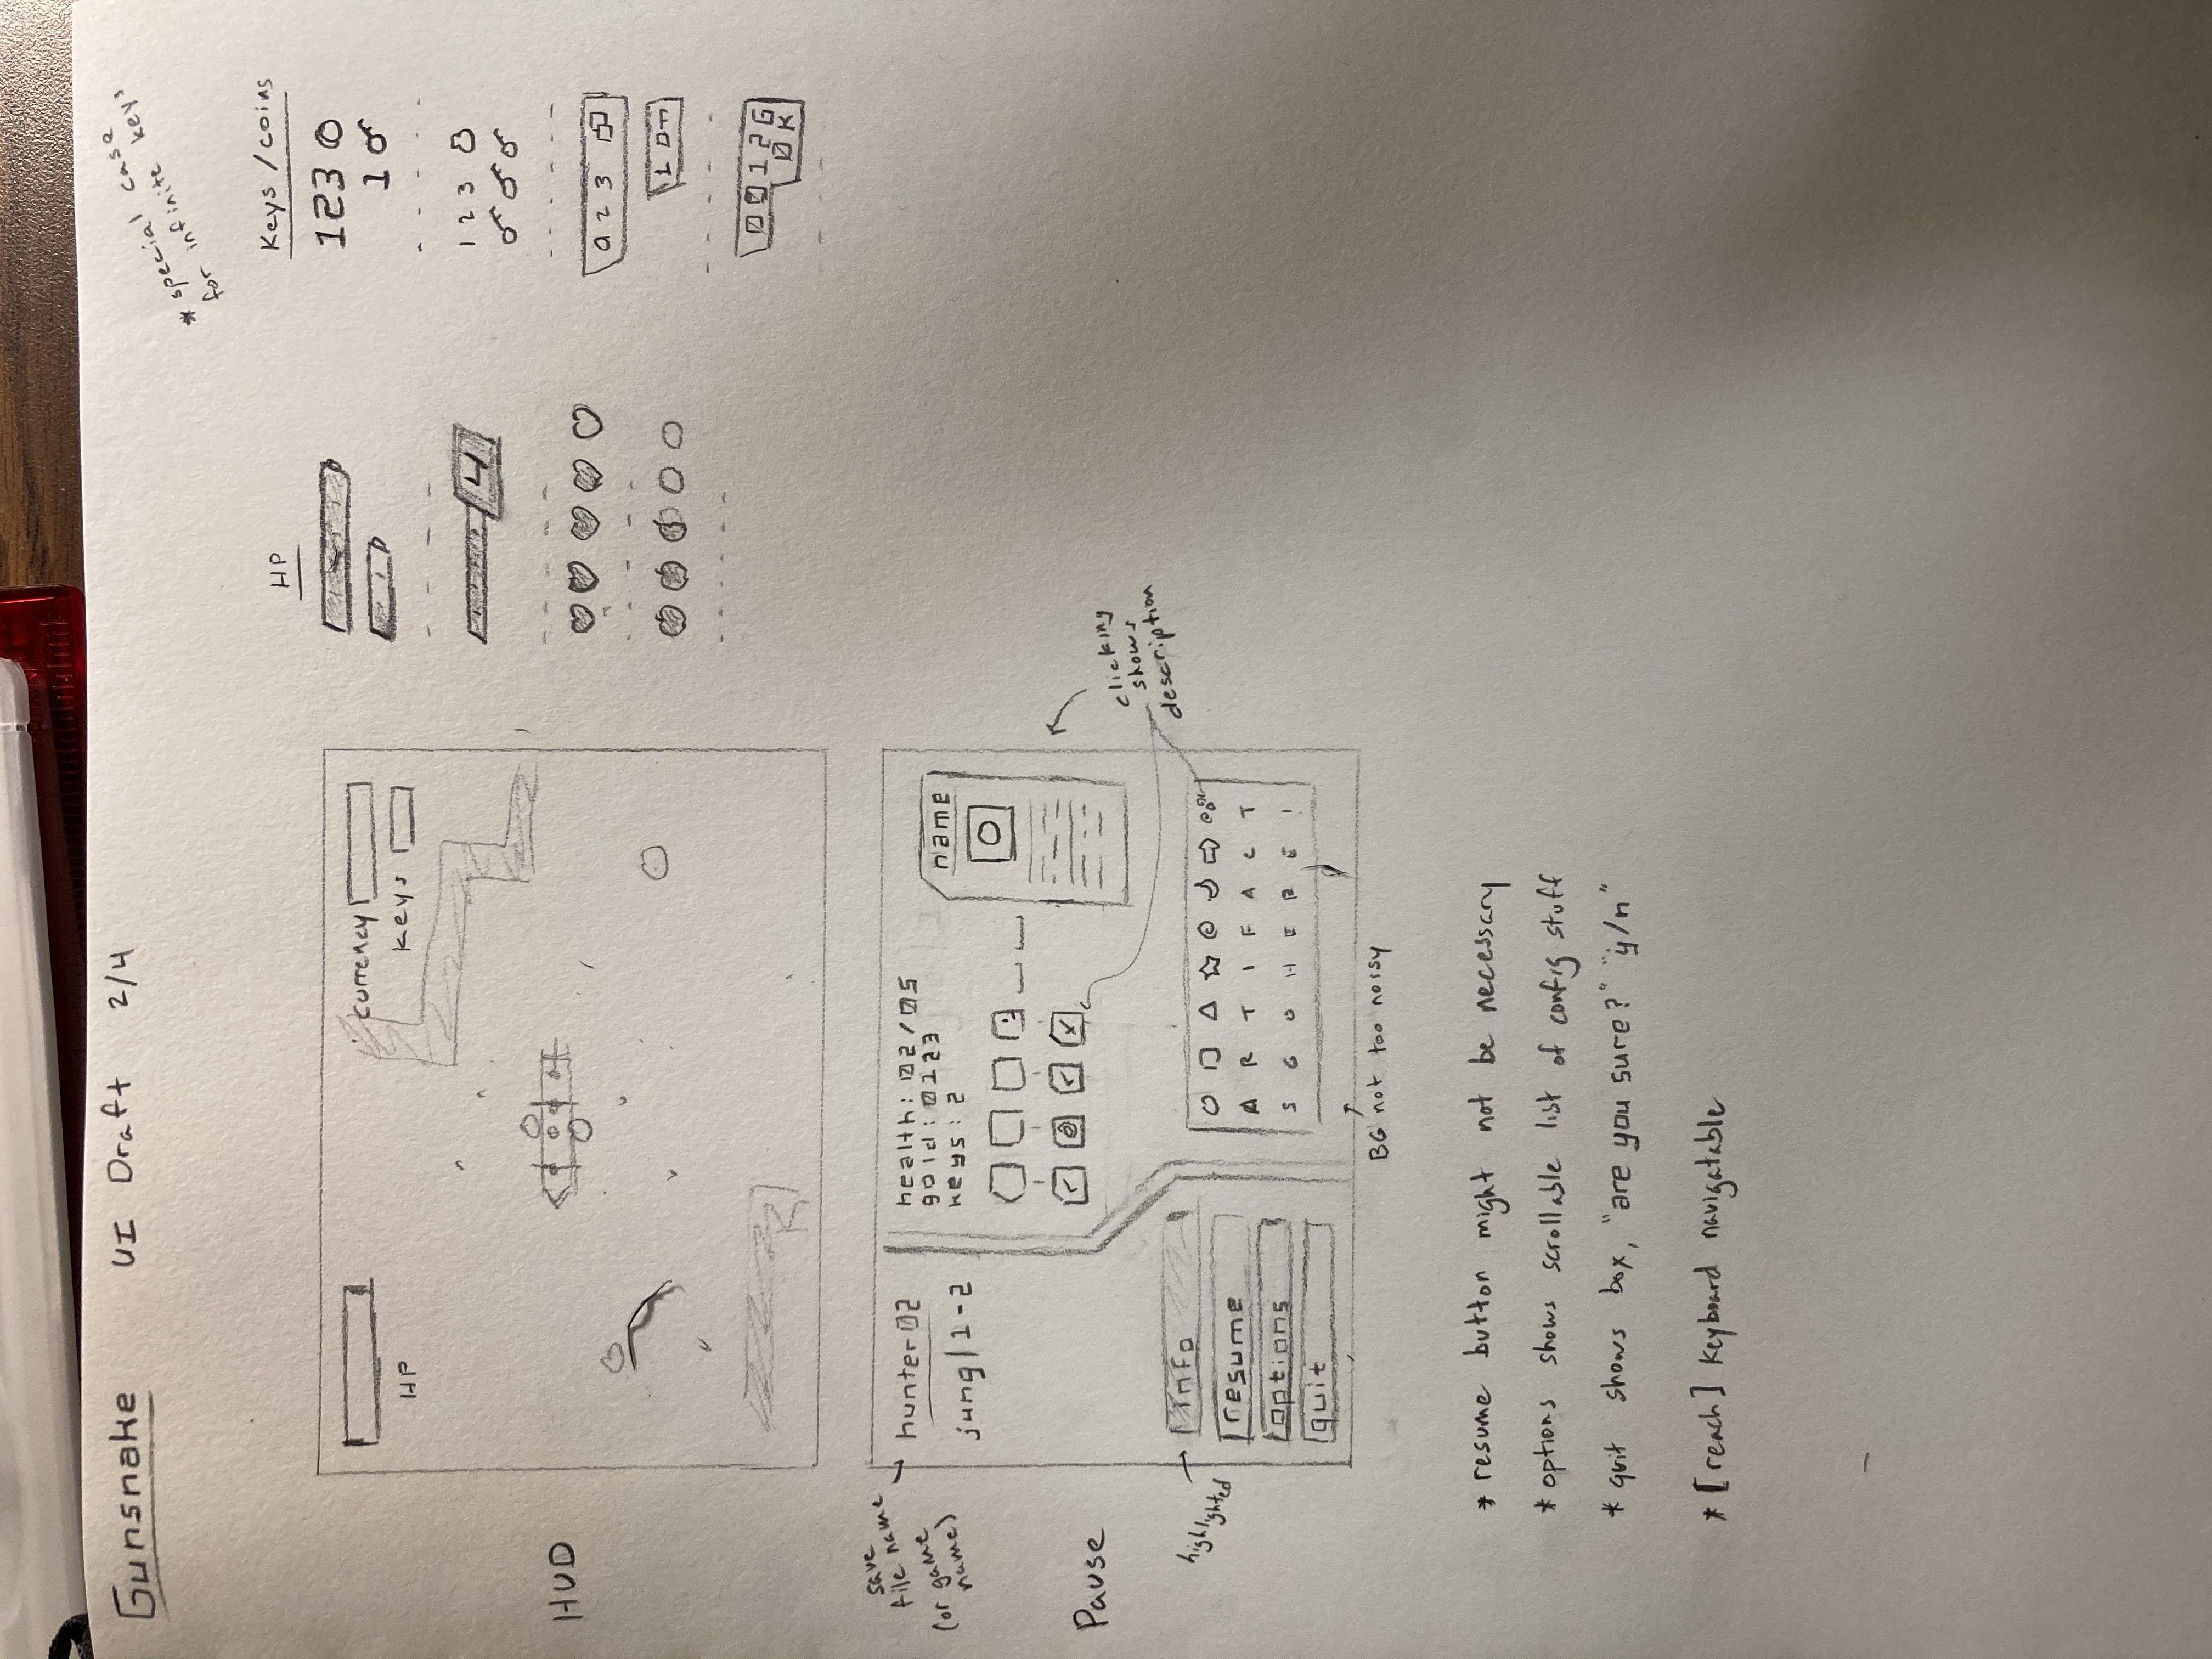 Gunsnake UI Draft 2/4
* special case
for infinite keys
HP
Keys / coins
123
1
currency
keys
HP
4
1 2 3
HUD
0 2 3
1
0 0 1 2 G
0 K
save
file name
(or game
name)
hunter02
jungl 1-2
health: 02/05
gold: 0123
keys: 2
name
Pause
clicking
shows
description
highlighted
info
resume
options
quit
A R T I F A C T
S G O H E R E !
BG not too noisy
* resume button might not be necessary
* options shows scrollable list of config stuff
* quit shows box, "are you sure?" "y/n"
* [reach] keyboard navigatable